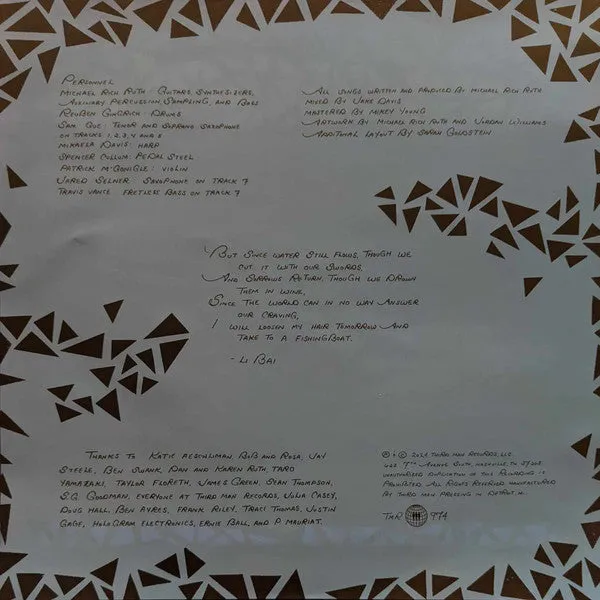 Personnel
Michael Rich Ruth: Guitars, Synthesizers,
Auxiliary Percussion, Sampling, and Bass
Reuben Gingrich: Drums
Sam Que: Tenor and Soprano Saxophone
on tracks 1, 2, 3, 4 and 6
Mikaela Davis: Harp
Spencer Cullum: Pedal Steel
Patrick M'Gonigle: Violin
Jared Selner: Saxophone on track 7
Travis Vance: Fretless Bass on track 7
All songs written and produced by Michael Rich Ruth
Mixed by Jake Davis
Mastered by Mikey Young
Artwork by Michael Rich Ruth and Jordan Williams
Additional Layout by Sarah Goldstein
But since water still flows, though we
cut it with our swords,
And sorrows return, though we drown
them in wine,
Since the world can in no way answer
our craving,
I will loosen my hair tomorrow and
take to a fishingboat.
- Li Bai
Thanks to Katie Aeschliman, Bob and Rosa, Jay
Steele, Ben Swank, Dan and Karen Ruth, Taro
Yamazaki, Taylor Floreth, James Green, Sean Thompson,
S.G. Goodman, everyone at Third Man Records, Julia Casey,
Doug Hall, Ben Ayres, Frank Riley, Traci Thomas, Justin
Gage, Hologram Electronics, Ernie Ball, and P. Mauriat.
℗ & © 2024 Third Man Records, LLC
Avenue South, Nashville, TN 37203
Unauthorized duplication of this recording is
prohibited. All rights reserved. Manufactured
by Third Man Pressing in Detroit, MI.
TMR